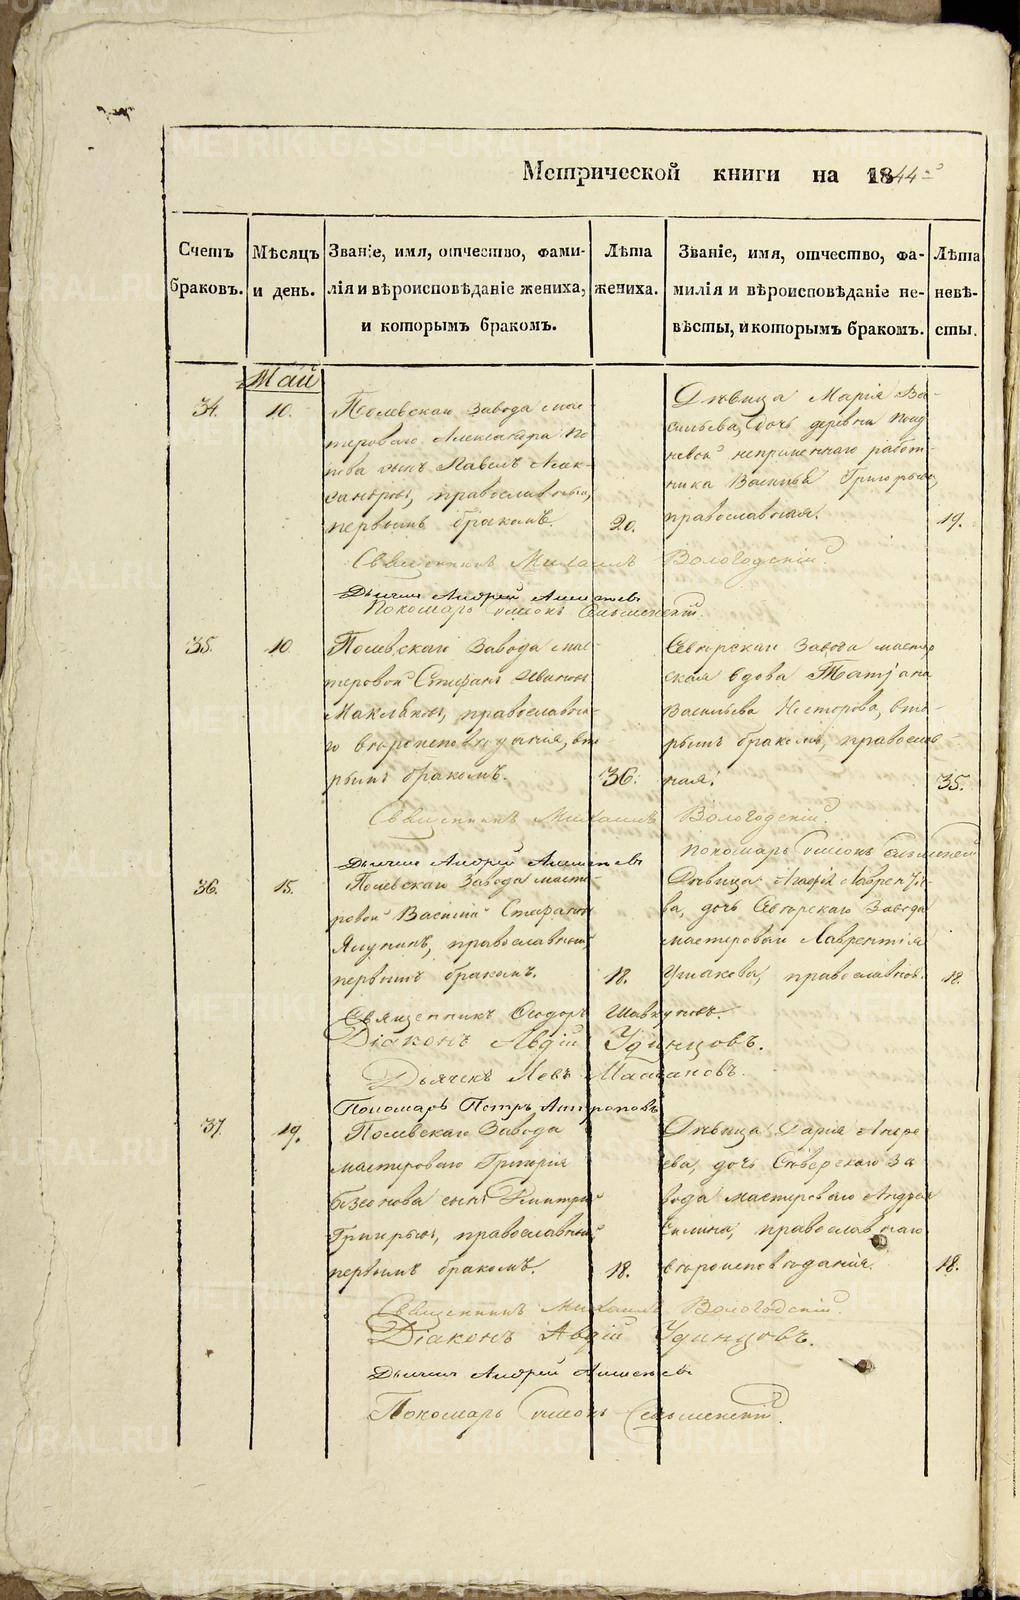 METRIKI.GASO-URAL.RU
Метрической книги на 1844
Счетъ браковъ.
Мѣсяцъ и день.
Званіе, имя, отчество, фами-
лія и вѣроисповѣданіе жениха,
и которымъ бракомъ.
Лѣта жениха.
Званіе, имя, отчество, фа-
милія и вѣроисповѣданіе не-
вѣсты, и которымъ бракомъ.
Лѣта невѣ-
сты.
Май
34. 10.
Полевскаго Завода мас-
тероваго Александра По
сынъ Павелъ Алек-
сандровъ, православный,
первымъ бракомъ.
20.
Дѣвица Марія Ва-
сильева, дочь деревни
непременнаго работ-
ника Василья Григорьева,
православная.
19.
Священникъ Михаилъ Вологодскій
Дьячекъ Андрей
Пономарь Симеонъ
35. 10
Полевскаго Завода мас-
теровой Стефанъ Ивановъ
православна-
го вѣроисповѣданія, вто
рымъ бракомъ.
36.
Сѣверскаго Завода мастер
ская вдова Татіана
Васильева Несторова, вто-
рымъ бракомъ, православ-
ная.
35.
Священникъ Михаилъ Вологодскій
Пономарь Симеонъ
Дьячекъ Андрей
36. 15.
Полевскаго Завода масте-
ровой Василій Стефановъ
православный,
первымъ бракомъ.
18.
Дѣвица Агафія Лаврентье-
ва, дочь Сѣверскаго Завода
мастероваго Лаврентія
Ушакова, православнаго.
18.
Священникъ Ѳеодоръ Шавкуновъ.
Діаконъ Авдій Удинцовъ.
Дьячекъ Левъ
Пономарь Петръ Антроповъ
37. 19.
Полевскаго Завода
мастероваго Григорія
сынъ Димитрій
Григорьевъ, православный,
первымъ бракомъ.
18.
Дѣвица Дарія Андре
ева, дочь Сѣверскаго За
вода мастероваго Андрея
православнаго
вѣроисповѣданія.
18.
Священникъ Михаилъ Вологодскій
Діаконъ Авдій Удинцовъ.
Дьячекъ Андрей
Пономарь Симеонъ